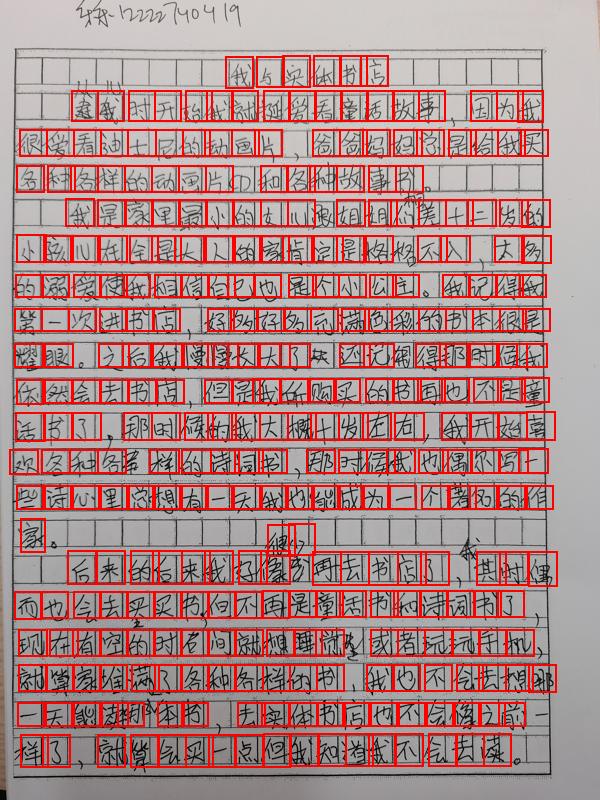 12222740419
我与实体书店
从小时开始我就挺爱看童话故事，因为我
很爱看迪士尼的动画片，爸爸妈妈总是给我买
各种各样的动画片CD和各种故事书。
我是家里最小的女儿跟姐姐们相差十二岁的
小孩儿在全是大人的家肯定是格格不入，太多
的溺爱使我相信自己也是个小公主。我记得我
第一次进书店，好多好多充满色彩的书本很是
耀眼。之后我慢慢长大了 还记得那时候我
依然会去书店，但是我所购买的书再也不是童
话书了，那时候的我大概十岁左右，我开始喜
欢各种各样的诗词书，那时候我也偶尔写一
些诗心里总想有一天我也能成为一个著名的作
家。
后来的后来我好像很少再去书店了，我其时偶
而也会去买买书，但不再是童话书和诗词书了，
现在有空的时间就想睡觉或者玩玩手机，
就算家堆满了各种各样的书，我也不会去想那
一天能读那本书，去实体书店也不会像之前一
样了，就算会买一点但我知道我不会去读。